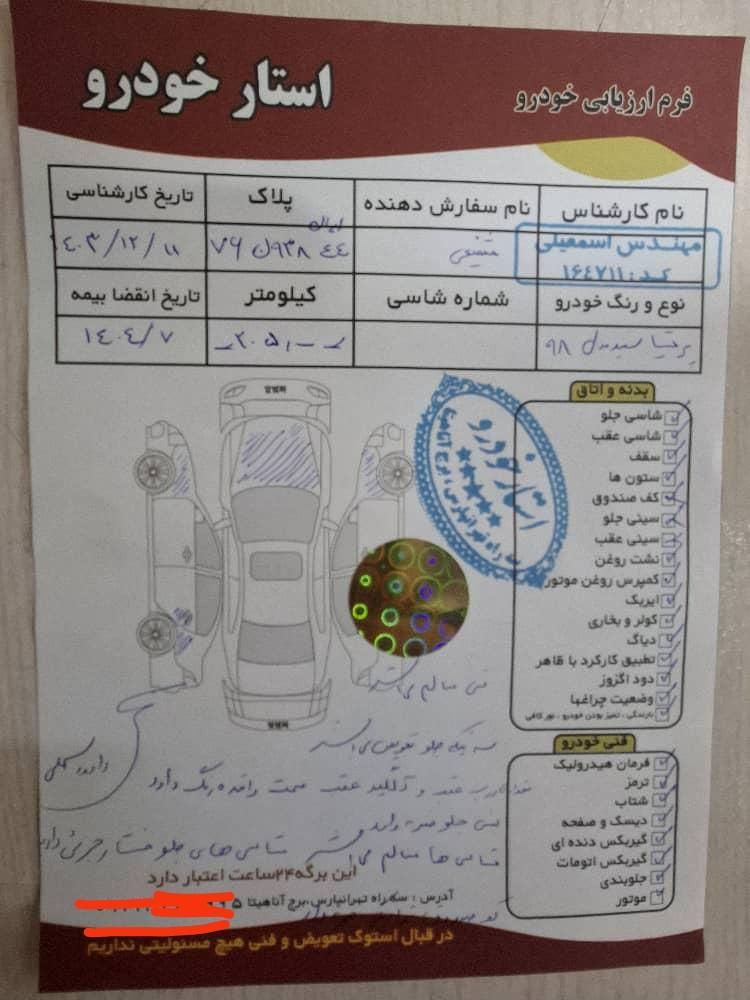 استار خودرو
فرم ارزیابی خودرو
نام کارشناس
نام سفارش دهنده
پلاک
تاریخ کارشناسی
مهندس اسمعیلی
کد: ۱۶۴۷۱۱
ایران
۷۶ ن ۹۳۸ ۴۴
۱۴۰۳/۱۲/۱۱
نوع و رنگ خودرو
شماره شاسی
کیلومتر
تاریخ انقضا بیمه
سفید مدل ۹۸
۲۰۵
۱۴۰۴/۷
بدنه و اتاق
شاسی جلو
شاسی عقب
سقف
ستون ها
کف صندوق
سینی جلو
سینی عقب
نشت روغن
کمپرس روغن موتور
ایربک
کولر و بخاری
دیاگ
تطبیق کارکرد با ظاهر
دود اگزوز
وضعیت چراغها
بارندگی ، تمیز بودن خودرو ، نور کافی
استار خودرو
فنی سالم می باشد
فنی خودرو
فرمان هیدرولیک
ترمز
شتاب
دیسک و صفحه
گیربکس دنده ای
گیربکس اتومات
جلوبندی
موتور
سه تیکه جلو تعویض می باشد
درب عقب و گلگیر عقب سمت راننده رنگ دارد
سینی جلو ضربه دارد
شاسی های جلو فشار جزئی دارد
این برگه ۲۴ساعت اعتبار دارد
آدرس : سه راه تهرانپارس،برج آناهیتا
در قبال استوک تعویض و فنی هیچ مسئولیتی نداریم